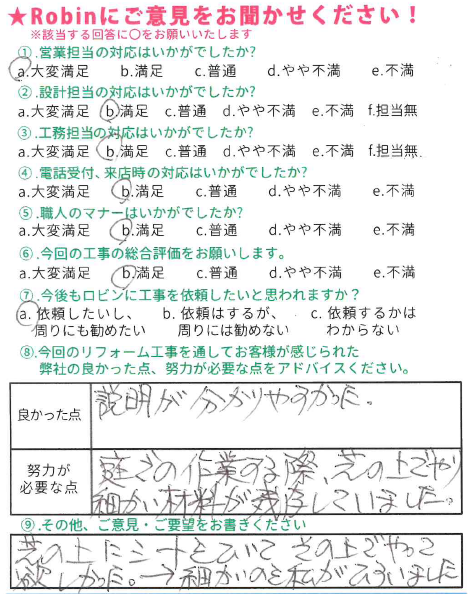 ★Robinにご意見をお聞かせください！
※該当する回答に〇をお願いいたします
①.営業担当の対応はいかがでしたか?
a.大変満足 b.満足 c.普通 d.やや不満 e.不満
②.設計担当の対応はいかがでしたか?
a.大変満足 b.満足 c.普通 d.やや不満 e.不満 f.担当無
③.工務担当の対応はいかがでしたか?
a.大変満足 b.満足 c.普通 d.やや不満 e.不満 f.担当無.
④.電話受付、来店時の対応はいかがでしたか?
a.大変満足 b.満足 c.普通 d.やや不満 e.不満
⑤.職人のマナーはいかがでしたか?
a.大変満足 b.満足 c.普通 d.やや不満 e.不満
⑥.今回の工事の総合評価をお願いします。
a.大変満足 b.満足 c.普通 d.やや不満 e.不満
⑦.今後もロビンに工事を依頼したいと思われますか？
a.依頼したいし、 b.依頼はするが、 c.依頼するかは
周りにも勧めたい 周りには勧めない わからない
⑧.今回のリフォーム工事を通してお客様が感じられた
弊社の良かった点、努力が必要な点をアドバイスください。
良かった点 説明が分かりやすかった。
努力が
必要な点
庭での作業する際、芝の上でやり
細かい材料が残存していました。
⑨.その他、ご意見・ご要望をお書きください
芝の上にシートをひいて その上でやって
欲しかった。→細かいのを私がひろいました